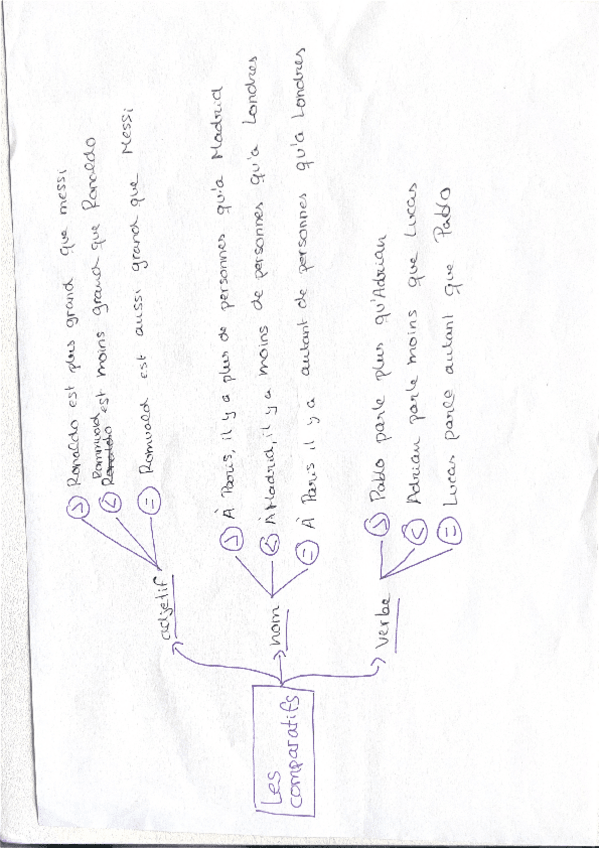 Les
comparatifs
adjetif
> Ronaldo est plus grand que messi
Rommuald
< Ronaldo est moins grand que Ronaldo
= Romuald est aussi grand que Messi
nom
> À Paris, il y a plus de personnes qu'à Madrid
< À Madrid, il y a moins de personnes qu'à Londres
= À Paris il y a autant de personnes qu'à Londres
verbe
> Pablo parle plus qu'Adrian
< Adrian parle moins que Lucas
= Lucas parle autant que Pablo